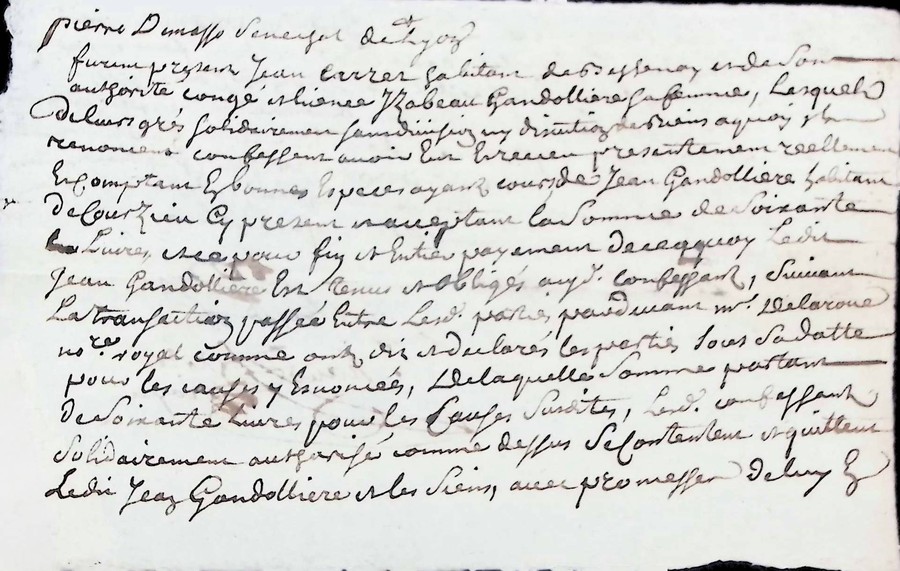 pierre Dumasso Seneschal de Lyon
furent present Jean Carret habitant de Bessenay et de Son
authorité congé et licence Yzabeau Gandolliere sa femme, Lesquels
de leurs grés solidairement sans division ny discution de biens a quoy ils
renoncent confessent avoir Eu et receu presentement reellement
En comptant En bonnes Especes ayant cours de Jean Gandolliere habitant
de Courzieu Cy present et acceptant la Somme de Soixante
Livres, et ce pour fin et Entier payement de ce quoy Ledit
Jean Gandolliere Est tenus et obligés auxd. confessant, Suivant
La transaction passée Entre Lesd. parties pardevant mr. Delaroue
nore. royal comme ont dit et declarés les parties Sous Sa datte
pour les causes y Enoncées, De laquelle Somme portant
de Soixante Livres pour les Causes Susdites, Lesd. confessant
Solidairement authorisé comme dessus Se Contentent et quittent
Ledit Jean Gandolliere et les Siens, avec promesse De luy En